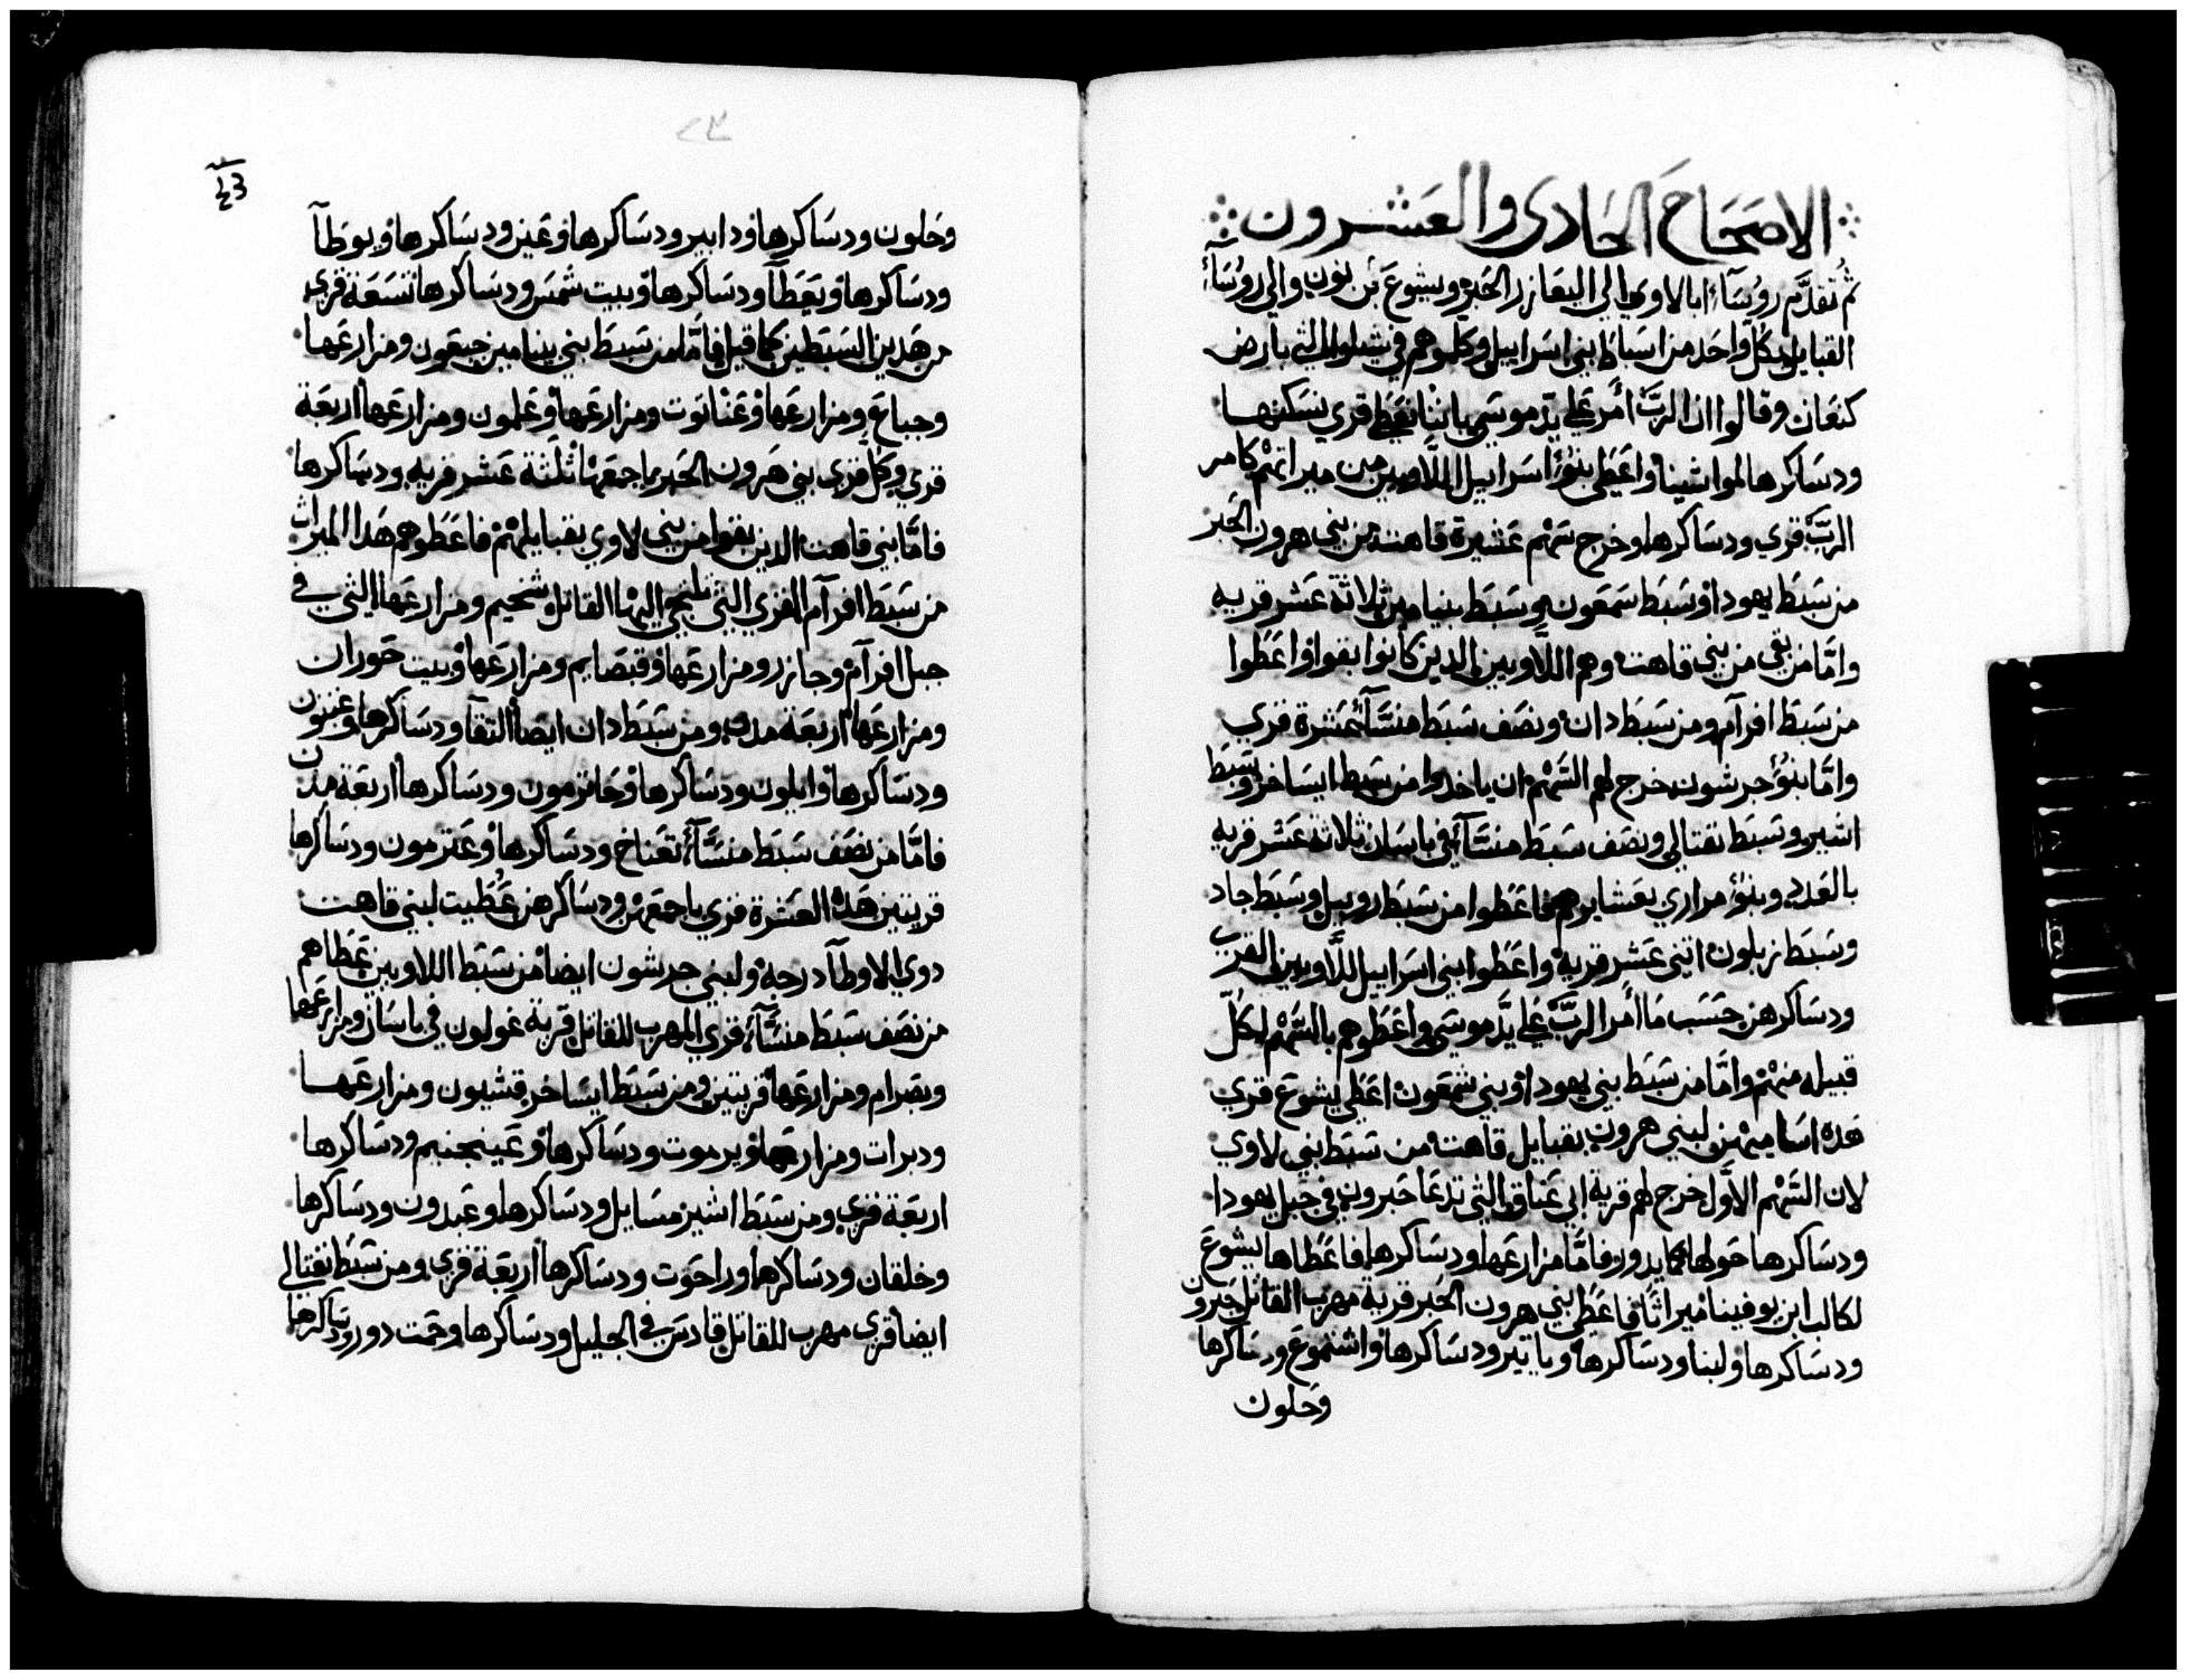 الاصحَاحَ الحَادى والعَشرون
ثم تقدَّم روُسَاء ابا لاوي الي اليعَازر الحَبر ويشوع بن نون والي روُسَاء
القبايل لكل واحَد من اسبَاط بني اسراييل وكلموهم في شيلوا التي بارض
كنعَان وقالوا ان الربَّ أمر عَلي يدّ موسَي باننا نعَطي قري نسَكنها
ودسَاكرها لمواشينا واعَطي بنوا اسراييل اللَّاويين من ميراتهم كامر
الربَّ قري ودسَاكرها وخرج سَهم عَشيرة قاهت من بني هرون الحَبر
من سَبَط يهودا وسَبَط سمَعون وسَبَط بنيامين ثلاثة عَشر قريه
وامَّا من بقي من بني قاهت وهم اللَّاويين الدين كانوا بقوا واعَطوا
من سَبَط افرآم ومن سَبَط دان ونصَف سَبَط منسَّآ عَشرة قري
وامَّا بنوُ جرشون خرج لهم السَهم ان ياخدوا من سَبَط ايسَاخر وسَبَط
اشير وسَبَط نفتالي ونصَف سَبَط منسَّآ في باسَان ثلاثة عَشر قريه
بالعَدد وبنوُ مراري بعَشايرهم فاعَطوا من سَبَط روبيل وسَبَط جاد
وسَبَط زبلون اتني عَشر قريه واعَطوا بني اسَراييل اللَّاويين القري
ودسَاكرهن حَسَب مَا أمر الربَّ عَلي يدَّ موسَي واعَطوهم بالسَهم لكلّ
قبيله منهم وامَّا من سَبَط بني يهودا وبني شمَعون اعَطي يشوع قري
هَده اسَاميهن لبني هرون بقبايل قاهت من سَبَط بني لاوي
لان السَهم الاوَّل خرج لهم قرية ابي عَناق التي تدعَا حَبرون في جبل يهودا
ودسَاكرها حَولها كما يدور فامَّا مزارعَها ودسَاكرها فاعَطاها يشوعَ
لكالب ابن يوفينا ميراثًا فاعَطي بني هرون الحَبر قرية مهرب القاتل حَبرون
ودسَاكرها ولبنا ودسَاكرها وياتير ودسَاكرها واشتموعَ ودسَاكرها
وحَلون
وحَلون ودسَاكرها ودابير ودسَاكرها وعَين ودسَاكرها ويوطَآ
ودسَاكرها ويعَطَآ ودسَاكرها وبيت شمَس ودسَاكرها تسَعَة قري
من هَدين السَبَطين كما قيل فامَّا من سَبَط بني بنيامين جبعَون ومزارعَها
وجباعَ ومزارعَها وعَناتوت ومزارعَها وعَلمون ومزارعَها اربعَة
قري وكل قري بني هَرون الحَبر باجمَعَها ثلثة عَشر قريه ودسَاكرها
فامَّا بني قاهت الدين بقوا من بني لاوي بقبايلهم فاعَطوهم هَدا الميراث
من سَبَط افرآم القري التي يلتجي اليها القاتل شخيم ومزارعَها التي في
جبل افرآم وجازر ومزارعَها وقبصَايم ومزارعَها وبيت حَوران
ومزارعَها اربَعة مدن ومن سَبَط دان ايضَا التقآ ودسَاكرها وغبتون
ودسَاكرها وايلون ودسَاكرها وحَاترمون ودسَاكرها اربَعة مدن
فامَّا من نصَف سَبَط منسَّآ تعَناخ ودسَاكرها وعَترمون ودسَاكرها
قريتين هَده العَشرة قري باجمعَهن ودسَاكرهن عَُطيت لبني قاهت
دوي الاوطآ درجه ولبني جرشون ايضَا من سَبَط اللاويين عَطاهم
من نصَف سَبَط منسَّآ قري المهرب للقاتل قرية غولون في باسَان ومزارعَها
وبصَرام ومزارعَها قريتين ومن سَبَط ايسَاخر قشيون ومزارعَها
ودبرات ومزارعَها ويرموت ودسَاكرها وعَينجنيم ودسَاكرها
اربعَة قري ومن سَبَط اشير مسَايل ودسَاكرها وعَبدون ودسَاكرها
وخلقان ودسَاكرها وراحَوت ودسَاكرها اربَعَة قري ومن سَبَط نفتالي
ايضَا قري مهرب للقاتل قادسَ في الجليل ودسَاكرها وحَمت دور ودسَاكرها